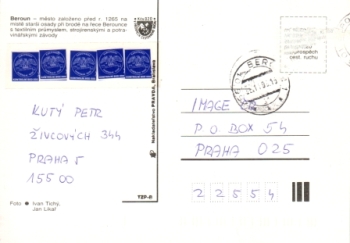 Beroun – město založeno před r. 1265 na
místě starší osady při brodě na řece Berounce
s textilním průmyslem, strojírenskými a potra-
vinářskými závody
KUTÝ PETR
ŽIVCOVÝCH 344
PRAHA 5
155 00
Foto ● Ivan Tichý,
Jan Lískal
Nakladatelství PRAVDA, Bratislava
TZP-R
BEROUN
IMAGE
P O BOX 54
PRAHA 025
2 2 5 5 4